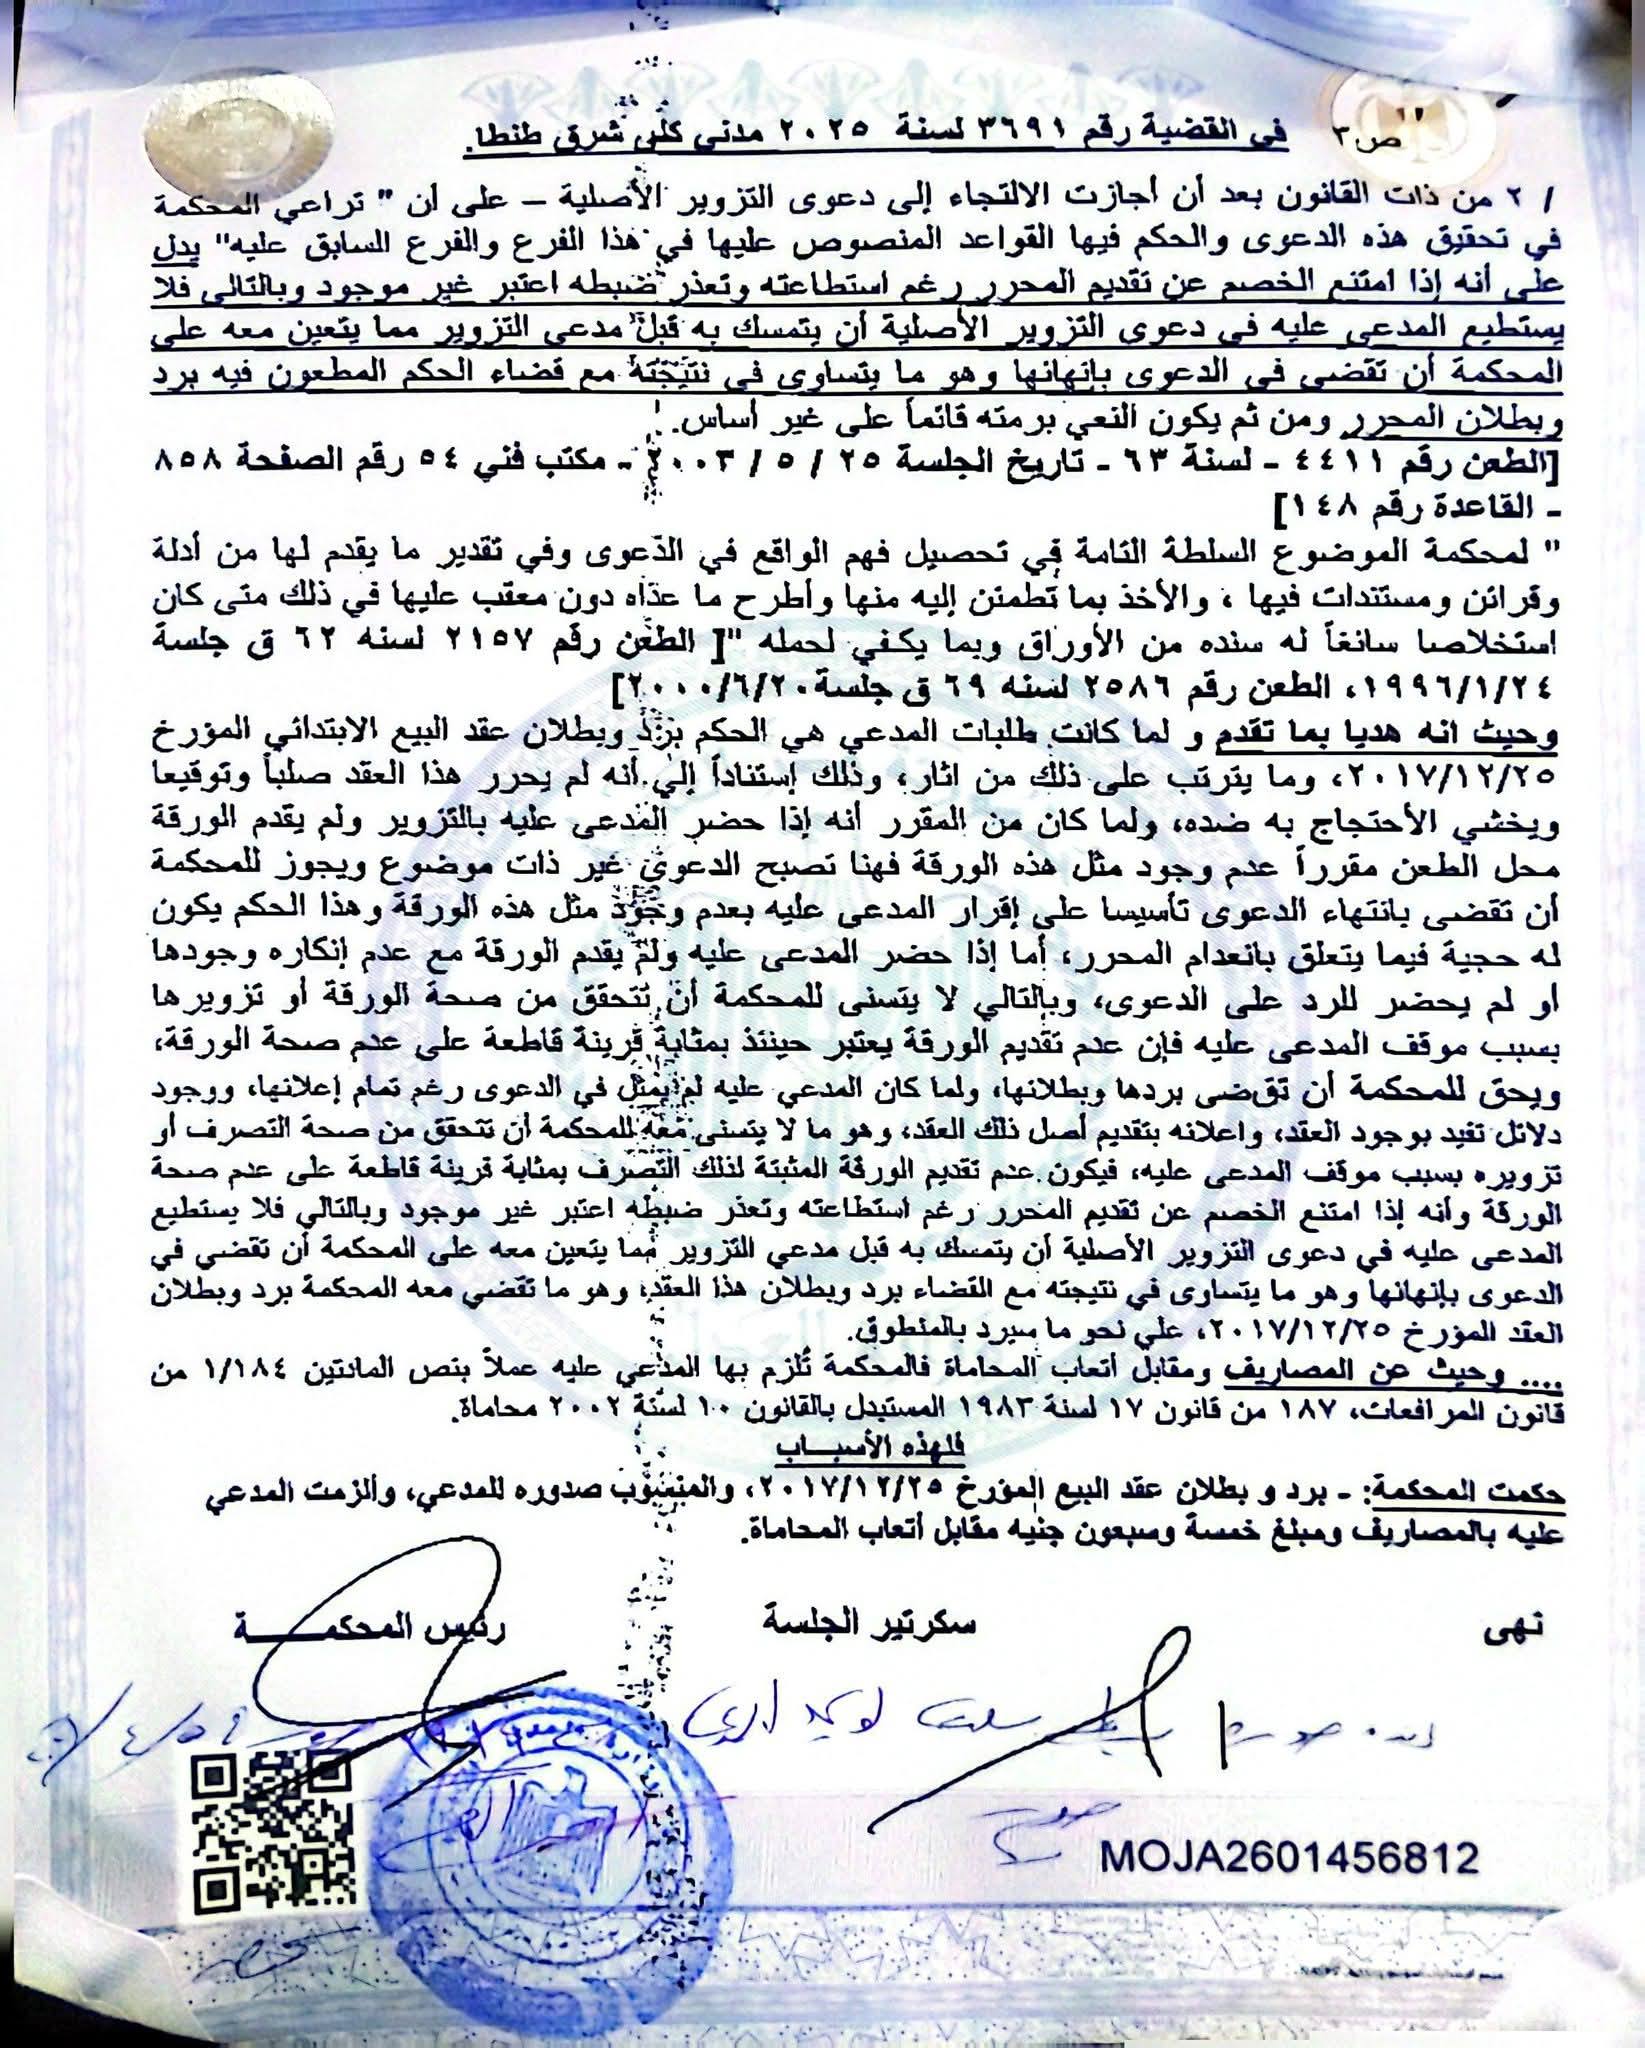 ص٣
في القضية رقم ٣٦٩١ لسنة ٢٠٢٥ مدني كلي شرق طنطا.
/ ٢ من ذات القانون بعد أن أجازت الالتجاء إلى دعوى التزوير الأصلية – على أن " تراعي المحكمة
في تحقيق هذه الدعوى والحكم فيها القواعد المنصوص عليها في هذا الفرع والفرع السابق عليه" يدل
على أنه إذا امتنع الخصم عن تقديم المحرر رغم استطاعته وتعذر ضبطه اعتبر غير موجود وبالتالى فلا
يستطيع المدعى عليه فى دعوى التزوير الأصلية أن يتمسك به قبل مدعى التزوير مما يتعين معه على
المحكمة أن تقضى فى الدعوى بإنهائها وهو ما يتساوى فى نتيجته مع قضاء الحكم المطعون فيه برد
وبطلان المحرر ومن ثم يكون النعي برمته قائماً على غير أساس.
[الطعن رقم ٤٤١١ - لسنة ٦٣ - تاريخ الجلسة ٢٥ / ٥ / ٢٠٠٣ - مكتب فني ٥٤ رقم الصفحة ٨٥٨
- القاعدة رقم ١٤٨]
" لمحكمة الموضوع السلطة التامة في تحصيل فهم الواقع في الدعوى وفي تقدير ما يقدم لها من أدلة
وقرائن ومستندات فيها ، والأخذ بما تطمئن إليه منها وأطرح ما عداه دون معقب عليها في ذلك متى كان
استخلاصا سائغاً له سنده من الأوراق وبما يكفي لحمله "[ الطعن رقم ٢١٥٧ لسنه ٦٢ ق جلسة
١٩٩٦/١/٢٤، الطعن رقم ٢٥٨٦ لسنه ٦٩ ق جلسة٢٠٠٠/٦/٢٠]
وحيث انه هديا بما تقدم و لما كانت طلبات المدعي هي الحكم برد وبطلان عقد البيع الابتدائي المؤرخ
٢٠١٧/١٢/٢٥، وما يترتب على ذلك من اثار، وذلك إستناداً إلي أنه لم يحرر هذا العقد صلباً وتوقيعا
ويخشي الأحتجاج به ضده، ولما كان من المقرر أنه إذا حضر المدعى عليه بالتزوير ولم يقدم الورقة
محل الطعن مقرراً عدم وجود مثل هذه الورقة فهنا تصبح الدعوى غير ذات موضوع ويجوز للمحكمة
أن تقضى بانتهاء الدعوى تأسيسا علي إقرار المدعى عليه بعدم وجود مثل هذه الورقة وهذا الحكم يكون
له حجية فيما يتعلق بانعدام المحرر، أما إذا حضر المدعى عليه ولم يقدم الورقة مع عدم إنكاره وجودها
او لم يحضر للرد على الدعوى، وبالتالي لا يتسنى للمحكمة أن تتحقق من صحة الورقة أو تزويرها
بسبب موقف المدعى عليه فإن عدم تقديم الورقة يعتبر حينئذ بمثابة قرينة قاطعة على عدم صحة الورقة،
ويحق للمحكمة أن تقضى بردها وبطلانها، ولما كان المدعي عليه لم يمثل في الدعوى رغم تمام إعلانها، ووجود
دلائل تفيد بوجود العقد، واعلانه بتقديم أصل ذلك العقد، وهو ما لا يتسنى معه للمحكمة أن تتحقق من صحة التصرف أو
تزويره بسبب موقف المدعى عليه، فيكون عدم تقديم الورقة المثبتة لذلك التصرف بمثابة قرينة قاطعة على عدم صحة
الورقة وأنه إذا امتنع الخصم عن تقديم المحرر رغم استطاعته وتعذر ضبطه اعتبر غير موجود وبالتالي فلا يستطيع
المدعى عليه في دعوى التزوير الأصلية أن يتمسك به قبل مدعي التزوير مما يتعين معه على المحكمة أن تقضي في
الدعوى بإنهائها وهو ما يتساوى في نتيجته مع القضاء برد وبطلان هذا العقد، وهو ما تقضي معه المحكمة برد وبطلان
العقد المؤرخ ٢٠١٧/١٢/٢٥، علي نحو ما سيرد بالمنطوق.
.... وحيث عن المصاريف ومقابل أتعاب المحاماة فالمحكمة تُلزم بها المدعي عليه عملاً بنص المادتين ١/١٨٤ من
قانون المرافعات، ١٨٧ من قانون ١٧ لسنة ١٩٨٣ المستبدل بالقانون ١٠ لسنة ٢٠٠٢ محاماة.
فلهذه الأسبـــاب
حكمت المحكمة: - برد و بطلان عقد البيع المؤرخ ٢٠١٧/١٢/٢٥، والمنسوب صدوره للمدعي، وألزمت المدعي
عليه بالمصاريف ومبلغ خمسة وسبعون جنيه مقابل أتعاب المحاماة.
نهى سكرتير الجلسة رئيس المحكمـــــــة
MOJA2601456812